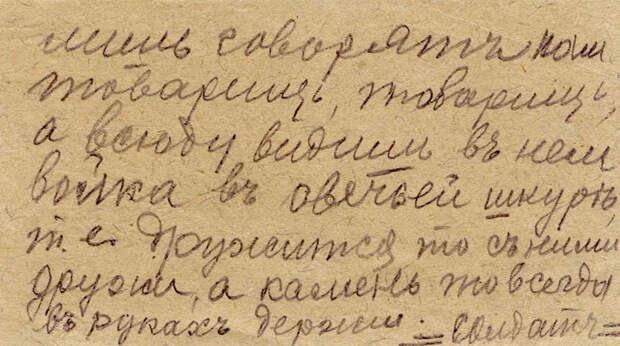 лишь говорятъ нам
товарищъ, товарищъ,
а всюду видишь въ нем
волка въ овечьей шкурѣ,
т.е. дружится то съ ними
дружи, а камень то всегды
въ рукахъ держи. =солдатъ=